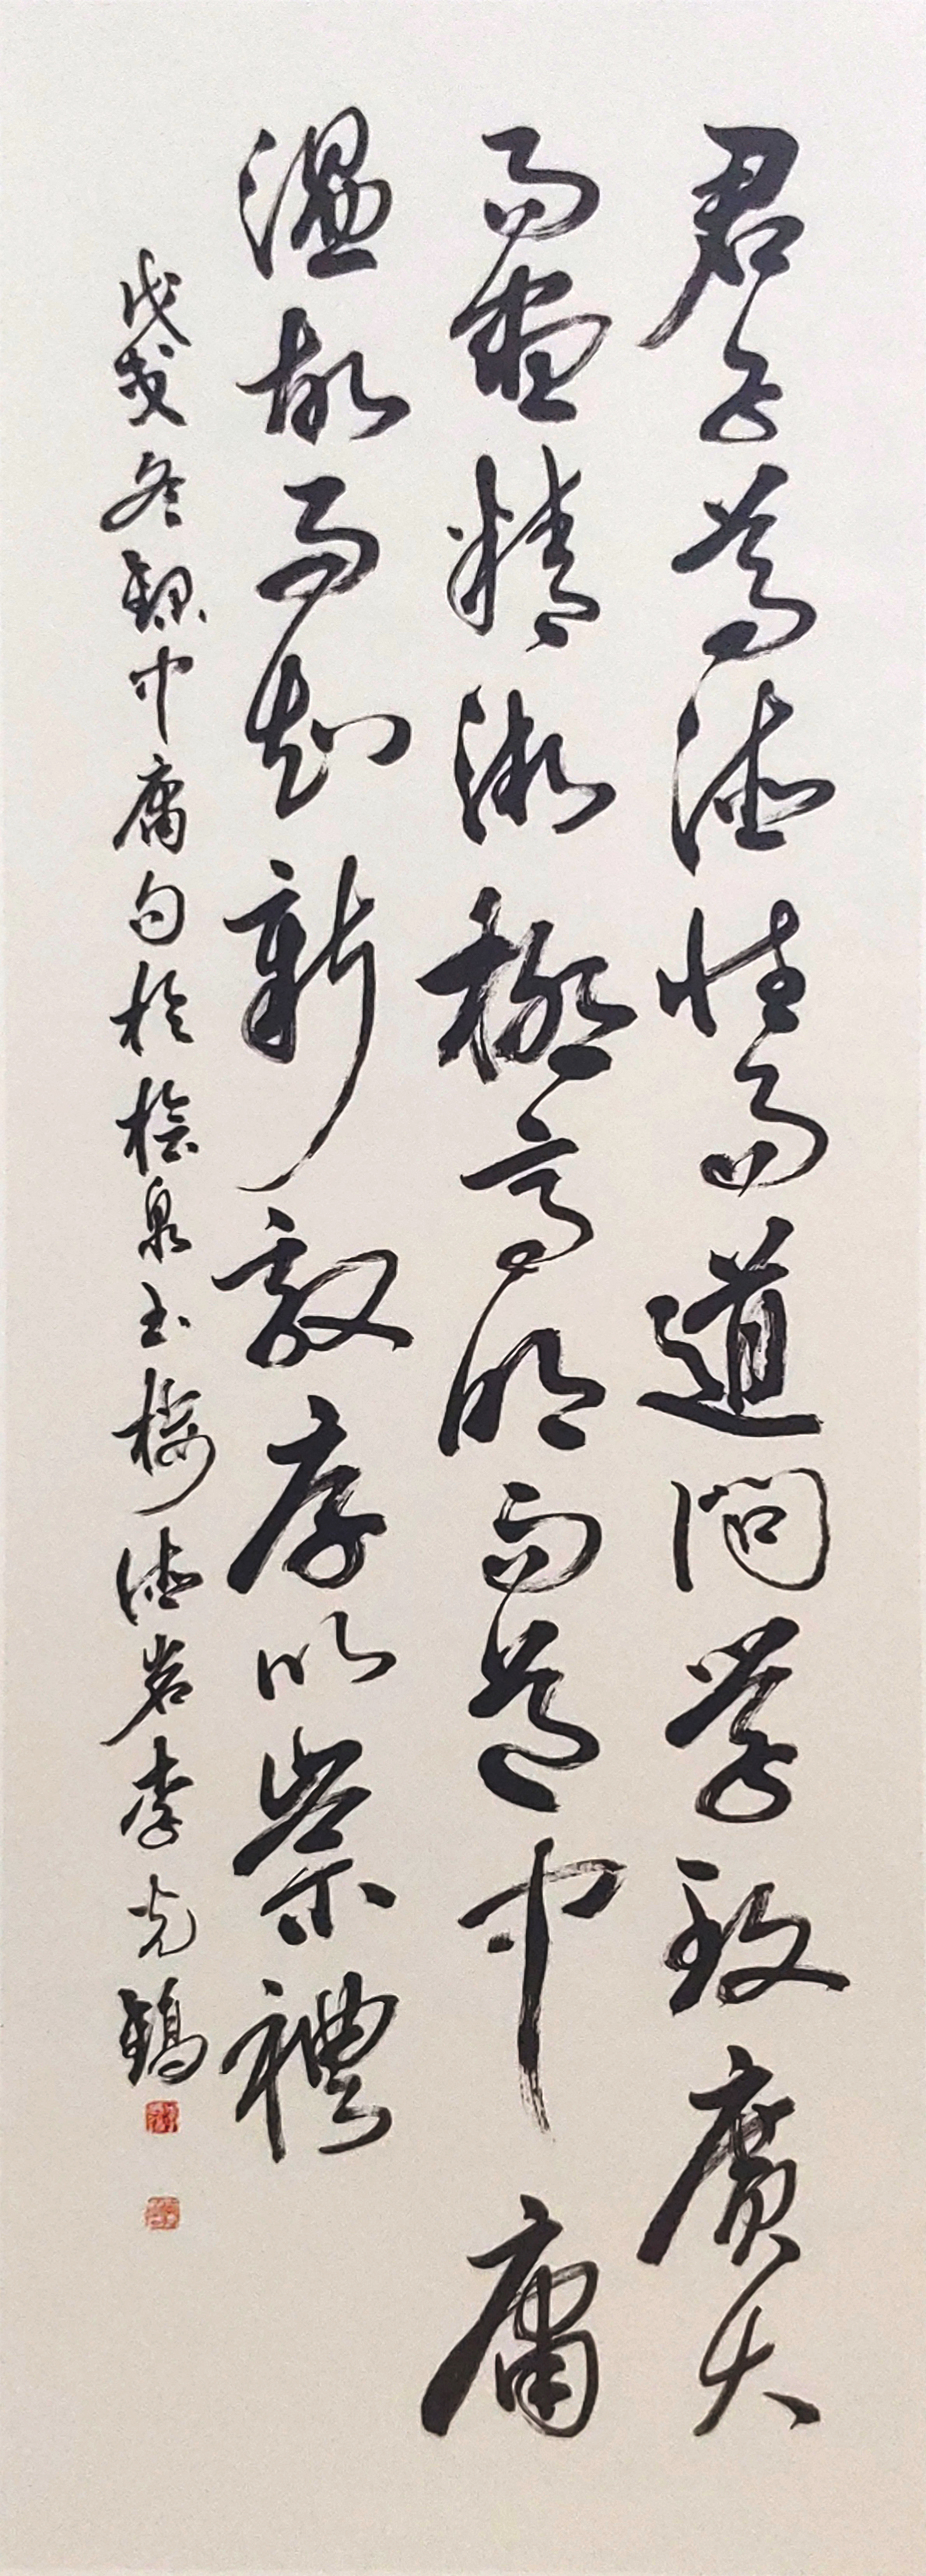 君子尊德性而道問學致廣大
而盡精微極高明而道中庸
溫故而知新敦厚以崇禮
戊戌冬錄中庸句於桧泉玉樓德岩李光鎬